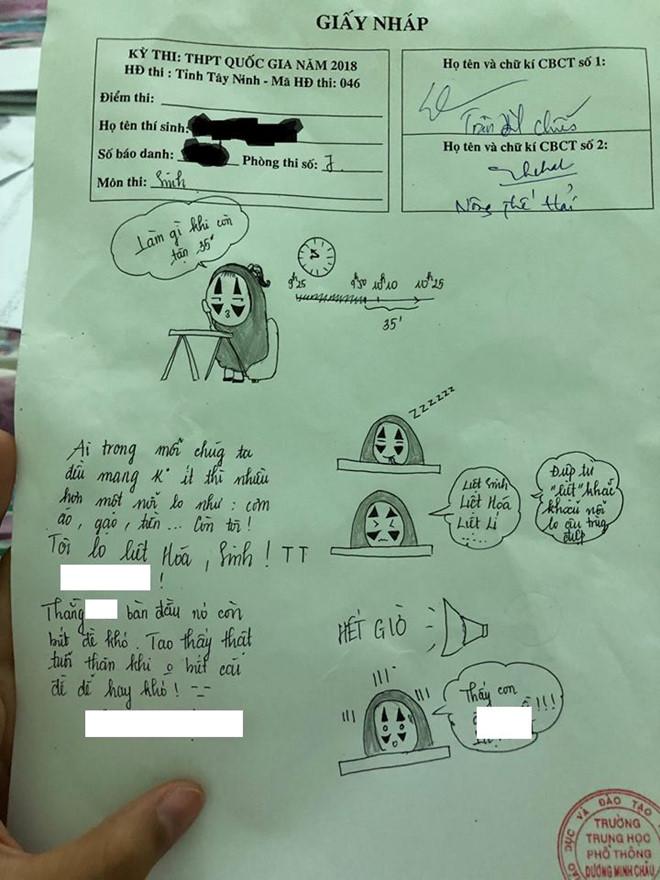 GIẤY NHÁP
KỲ THI: THPT QUỐC GIA NĂM 2018
HĐ thi : Tỉnh Tây Ninh - Mã HĐ thi: 046
Điểm thi:
Họ tên thí sinh:
Số báo danh: Phòng thi số: 7
Môn thi: Sinh
Họ tên và chữ kí CBCT số 1:
Trần
Họ tên và chữ kí CBCT số 2:
Nông Thế Hải
Làm gì khi còn
tận 35'
9h25 9h50 10h10 10h25
35'
zzzzzz
Ai trong mỗi chúng ta
đều mang k° ít thì nhiều
hơn một nỗi lo như : cơm
áo, gạo, tiền ... Còn tôi !
Tôi lo liệt Hóa, Sinh ! TT
!
Thằng bàn đầu nó còn
biết đề khó. Tao thấy thất
tuổi thân khi o biết cái
đề dễ hay khó ! -_-
Liệt Sinh
Liệt Hóa
Liệt Lí
.....
Đúp từ
"liệt" khắc
khoải nỗi
lo âu trùng
điệp
HẾT GIỜ
Thầy con
!!!
GIÁO DỤC VÀ ĐÀO TẠO
TRƯỜNG
TRUNG HỌC
PHỔ THÔNG
DƯƠNG MINH CHÂU